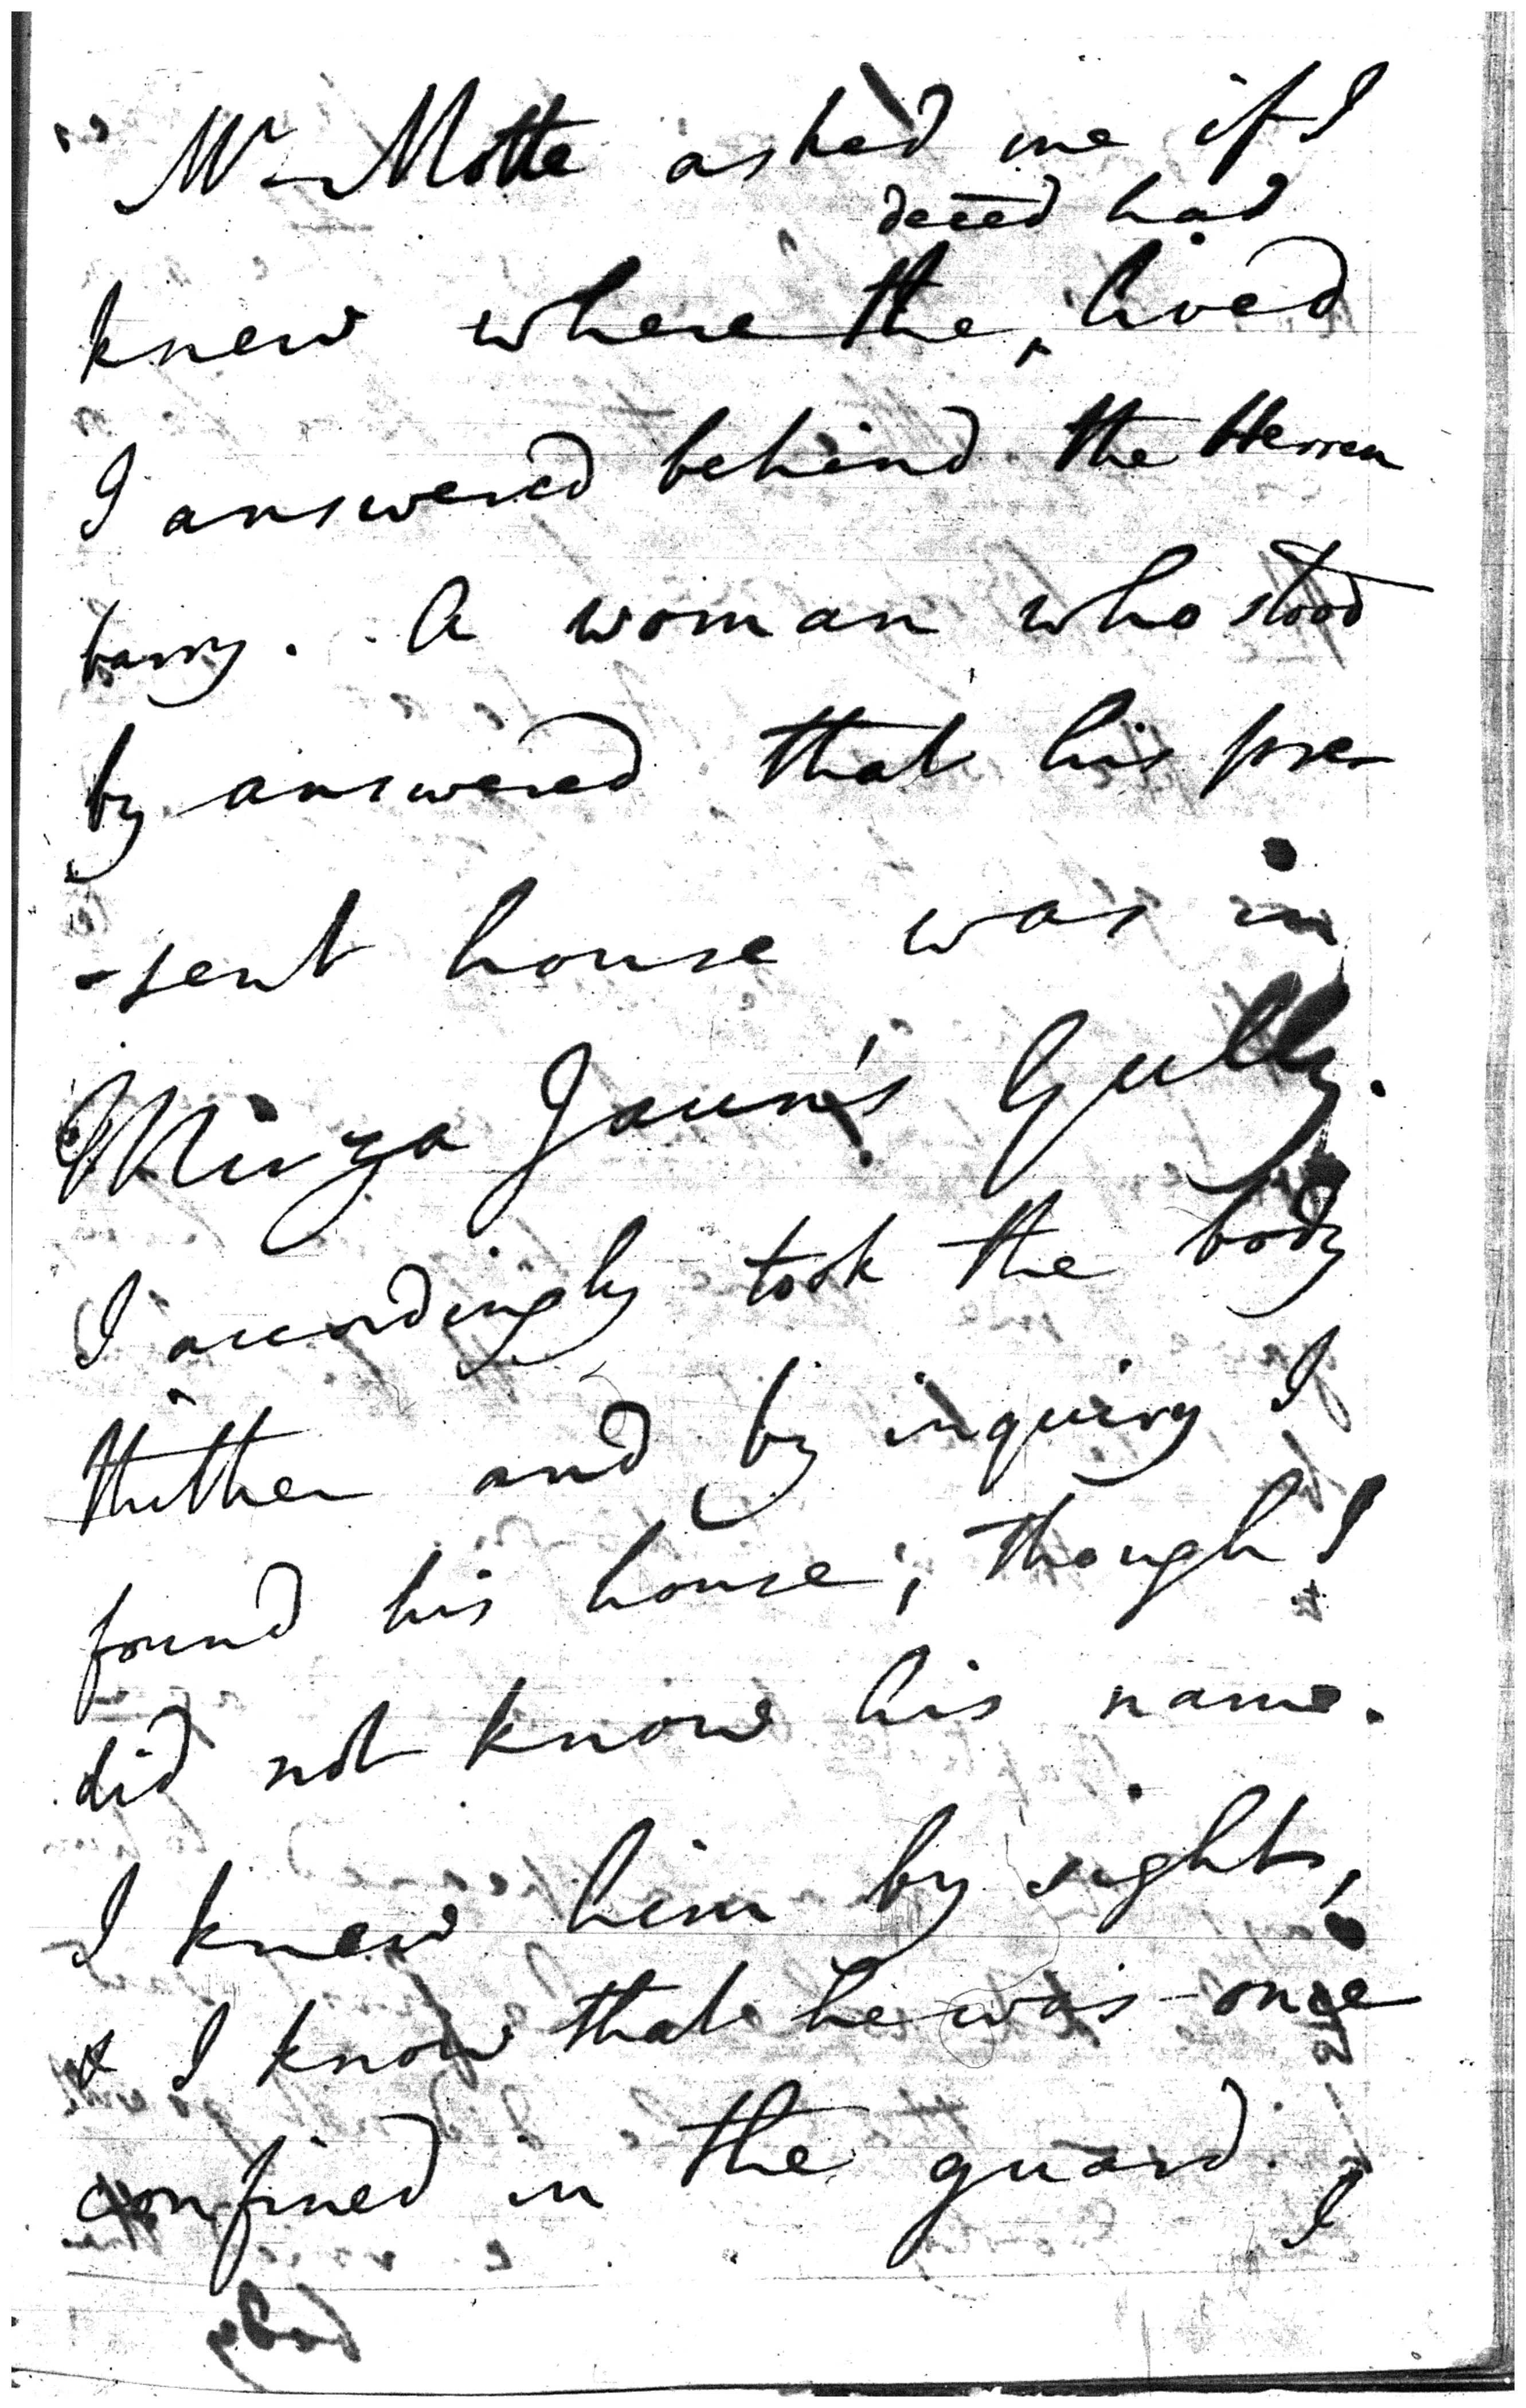 Mr Motte asked me if I
deced had
knew where the ^ lived
I answered behind the Herren
barry. A woman who stood
by answered that his pre-
-sent house was in
Mirza Jaun's Gully.
I accordingly took the body
thither and by inquiry I
found his house; though I
did not know his name.
I knew him by sight,
& I know that he was once
confined in the guard. I